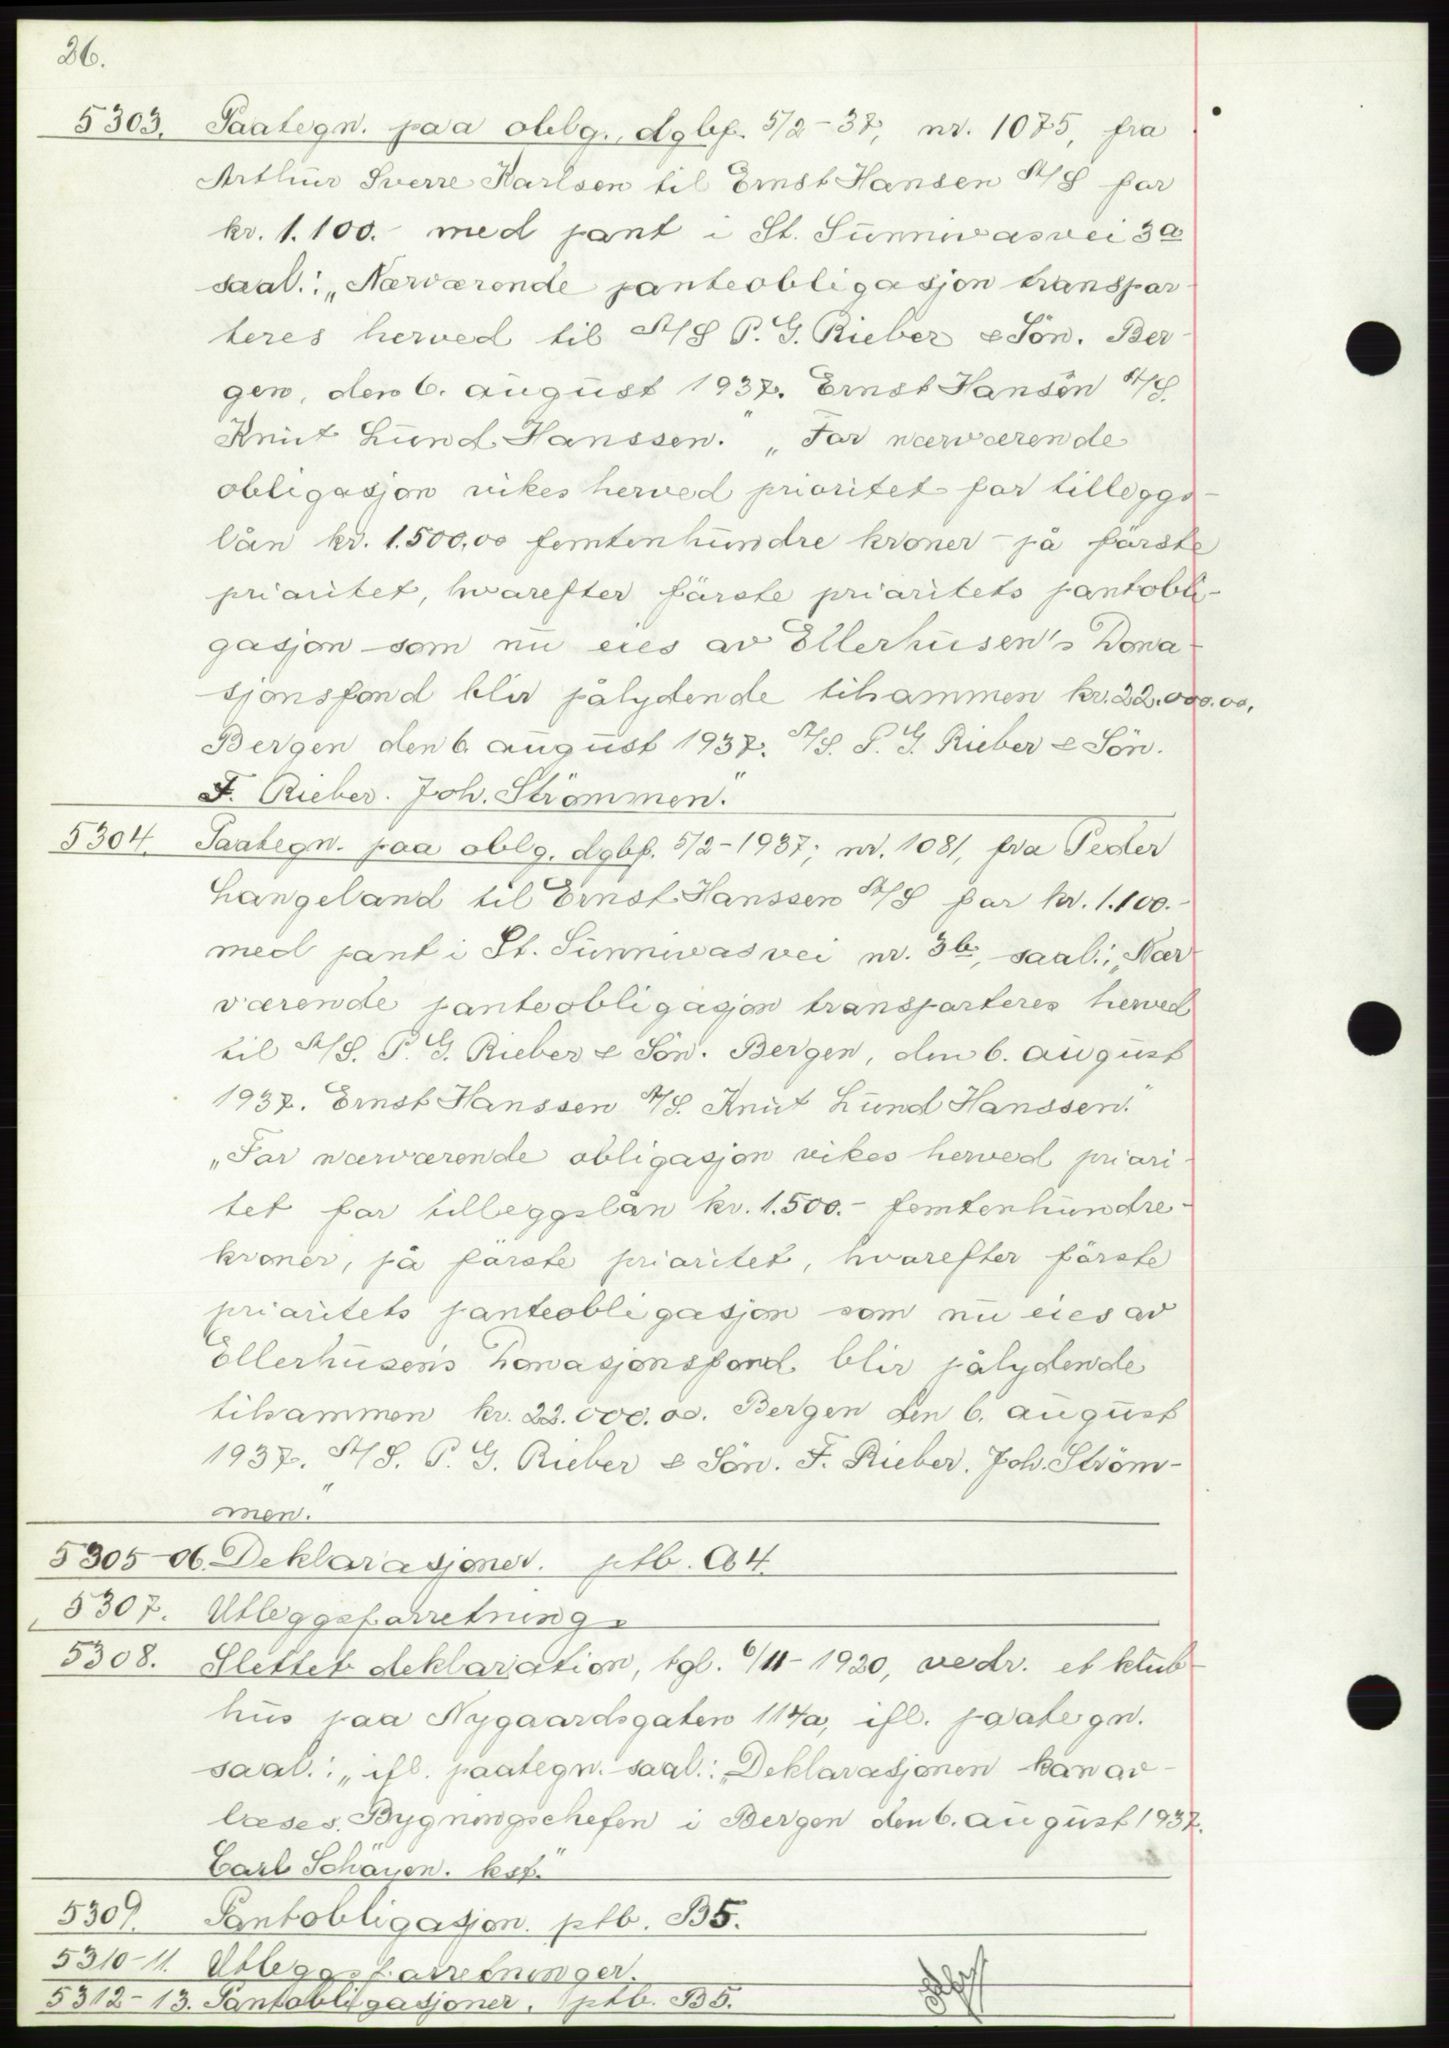 26.
5303. Paategn. paa oblg., dgbf. 5/2-37, nr. 1075, fra
Arthur Sverre Karlsen til Ernst Hansen A/S for
kr. 1.100.- med pant i St. Sunnivasvei 3a
saal.: „Nærværende panteobligasjon transpor-
teres herved til A/S P. G. Rieber & Sön. Ber-
gen, den 6. august 1937. Ernst Hansen A/S.
Knut Lund Hanssen." „For nærværende
obligasjon vikes herved prioritet for tilleggs-
lån kr. 1.500,00 femtenhundre kroner - på förste
prioritet, hvorefter förste prioritets pantobli-
gasjon som nu eies av Ellerhusen's Dona-
sjonsfond blir pålydende tilsammen kr. 22.000.00.
Bergen den 6. august 1937. A/S. P. G. Rieber & Sön.
F. Rieber. Joh. Strömmen."
5304. Paategn. paa oblg. dgbf. 5/2-1937, nr. 1081, fra Peder
Langeland til Ernst Hanssen A/S for kr. 1.100.-
med pant i St. Sunnivasvei nr. 3b, saal.: „Nær-
værende panteobligasjon transporteres herved
til A/S. P. G. Rieber & Sön. Bergen, den 6. august
1937. Ernst Hanssen A/S. Knut Lund Hanssen."
„For nærværende obligasjon vikes herved priori-
tet for tilleggslån kr. 1.500.- femtenhundre-
kroner, på förste prioritet, hvorefter förste
prioritets panteobligasjon som nu eies av
Ellerhusens Donasjonsfond blir pålydende
tilsammen kr. 22.000.00. Bergen den 6. august
1937. A/S. P. G. Rieber & Sön. F. Rieber. Joh. Ström-
men."
5305-06. Deklarasjoner. ptb. A4.
5307. Utleggsforretning
5308. Slettet deklaration, tgl. 6/11-1920, vedr. et klub-
hus paa Nygaardsgaten 114a, ifl. paategn.
saal.: „ifl. paategn. saal.: „Deklarasjonen kan av-
læses. Bygningschefen i Bergen den 6. august 1937.
Carl Schöyen. kst."
5309. Pantobligasjon. ptb. B5.
5310-11. Utleggsforretninger.
5312-13. Pantobligasjoner. ptb. B5.